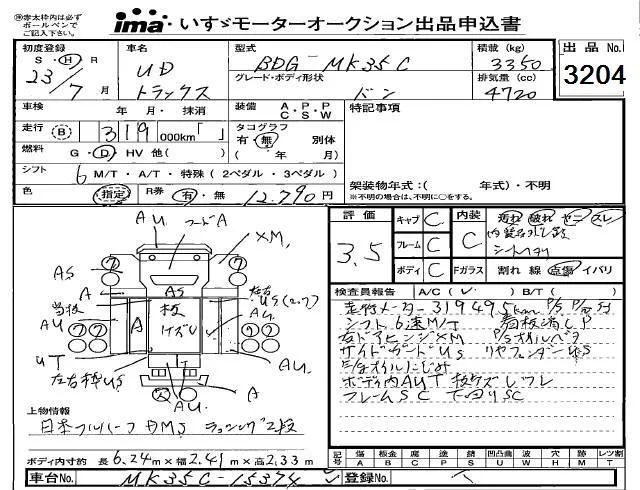 ㊟赤太枠内は必ず
ボールペンで
ご記入下さい。
ima・いすゞモーターオークション出品申込書
初度登録 S・H・R 23/7月
車名 UD トラックス
型式 BDG-MK35C
積載(kg) 3350
グレード・ボディ形状 ドン
排気量(cc) 4720
出品No. 3204
車検 年 月・抹消
装備 A・P・P C・S・W
特記事項
走行 B 319 000km「 」
タコグラフ 有・無 別体 ( 年 月)
燃料 G・D・HV 他( )
シフト 6 M/T・A/T・特殊(2ペダル・3ペダル)
架装物年式:( 年式)・不明
※不明の場合は、不明に○をする。
色 (指定) R券 有・無 12.790円
評価 3.5
キャブ C
フレーム C
ボディ C
内装 C
Fガラス 割れ 線 点傷 イバリ
汚れ 破れ ヤニ スレ
AU フードA
XM
AS
A
AS
左右 US
当板
AU
A
板 キズU
AU
UT
左右枠US
AU
A
AU.
検査員報告 A/C( ) B/T( )
走行メーター319495km P/S P/W
シフト6速M/T 看板消し P
右ドアヒンジXM P/Sオイルベタ
サイドガードUS リヤフェンダーUS
オイルにじみ
ボディ内AUT
フレームSC 下回りSC
上物情報
日本フルハーフ ラッシング2段
ボディ内寸約 長6.24m×幅2.41m×高2.33m
記号 傷A 板金B 腐C 色P 錆S 凹凸曲U 補修W 穴H 跡M レツ割T
車台No. MK35C-15374
登録No.